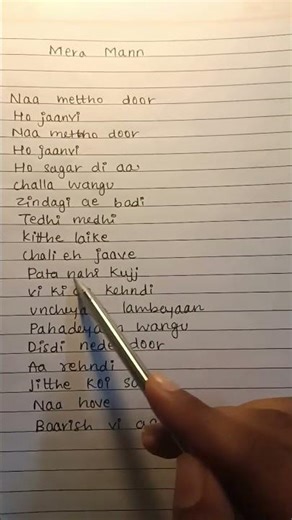 Mera Mann
Naa mettho door
Ho jaanvi
Naa mettho door
Ho jaanvi
Ho sagar di aa
challa wangu
Zindagi ae badi
Tedhi medhi
kithe laike
chali eh jaave
Pata nahi kujj
vi ki kehndi
lambeyaan
Pahadeyaan wangu
Disdi nede door
Aa rehndi
Jitthe koi
Naa hove
Baarish vi